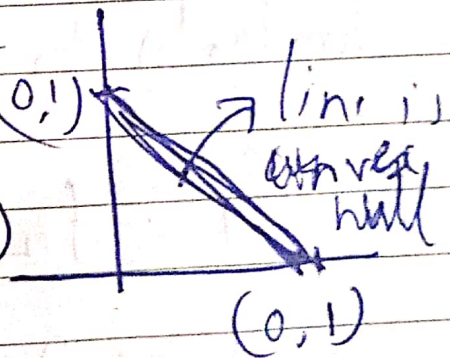 (0,1)
line is
convex
hull
(0,1)